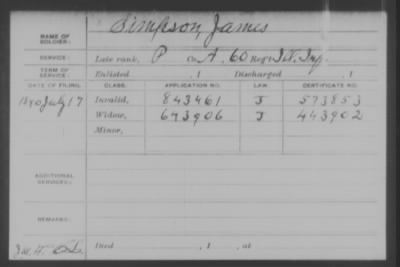 NAME OF SOLDIER: Simpson, James
SERVICE: Late rank, P Co. A, 60 Reg't Ill. Inf.
TERM OF SERVICE: Enlisted , 1 Discharged , 1
DATE OF FILING. CLASS. APPLICATION NO. LAW. CERTIFICATE NO.
1890 July 17 Invalid, 843461 J 573853
Widow, 643906 J 443902
Minor,
ADDITIONAL SERVICES:
REMARKS:
Died , 1 , at